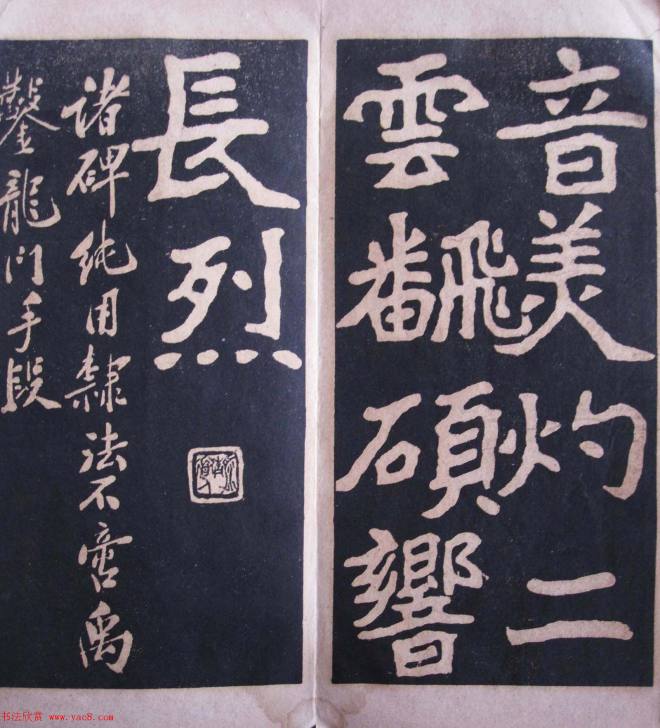 音美灼二
雲飜碩響
長烈
诸碑純用隸法不啻禹
鑿龍门手段
书法欣赏 www.yac8.com